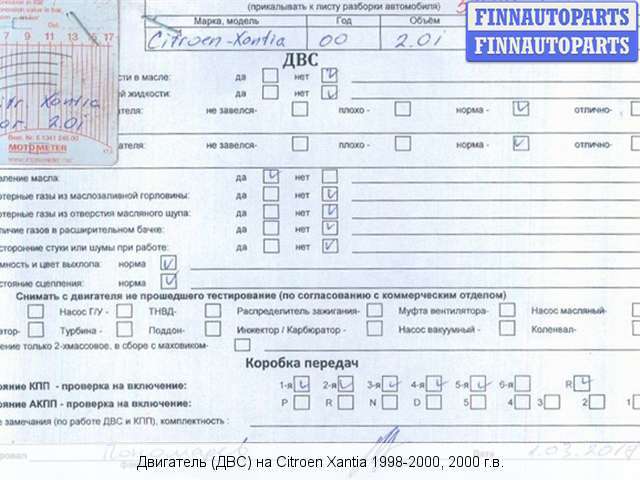 (прикалывать к листу разборки автомобиля)
FINNAUTOPARTS
FINNAUTOPARTS
Марка, модель Год Объём
Citroen-Xantia 00 2.0i
ДВС
7 9 11 13 15 17
Xantia
2.0i
MOTOMETER
сти в масле: да нет
й жидкости: да нет
ателя: не завелся- плохо - норма - отлично-
ателя: не завелся- плохо - норма - отлично-
вление масла: да нет
ртерные газы из маслозаливной горловины: да нет
ртерные газы из отверстия масляного щупа: да нет
личие газов в расширительном бачке: да нет
сторонние стуки или шумы при работе: да нет
мность и цвет выхлопа: норма
стояние сцепления: норма
Снимать с двигателя не прошедшего тестирование (по согласованию с коммерческим отделом)
Насос Г/У - ТНВД- Распределитель зажигания- Муфта вентилятора- Насос масляный-
атор- Турбина - Поддон- Инжектор / Карбюратор - Насос вакуумный - Коленвал-
ение только 2-хмассовое, в сборе с маховиком-
Коробка передач
ояние КПП - проверка на включение: 1-я 2-я 3-я 4-я 5-я 6-я R
ояние АКПП - проверка на включение: P R N D 4 3 2 1
е замечания (по работе ДВС и КПП), комплектность :
ировал
Двигатель (ДВС) на Citroen Xantia 1998-2000, 2000 г.в.